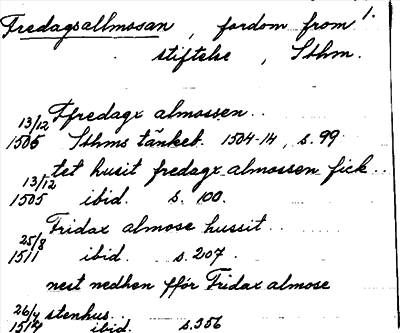 Fredagsallmosan, fordom from 1.
stiftelse, Sthm.
Ffredagx almossen..
13/12
1505 Sthms tänkeb. 1504-14, s. 99.
tet husit fredagx almossen fick..
13/12
1505 ibid. s. 100.
Fridax almose hussit..
25/8
1511 ibid. s. 207.
nest nedhen fför Fridax almose
stenhus..
26/4
1514 ibid. s. 356